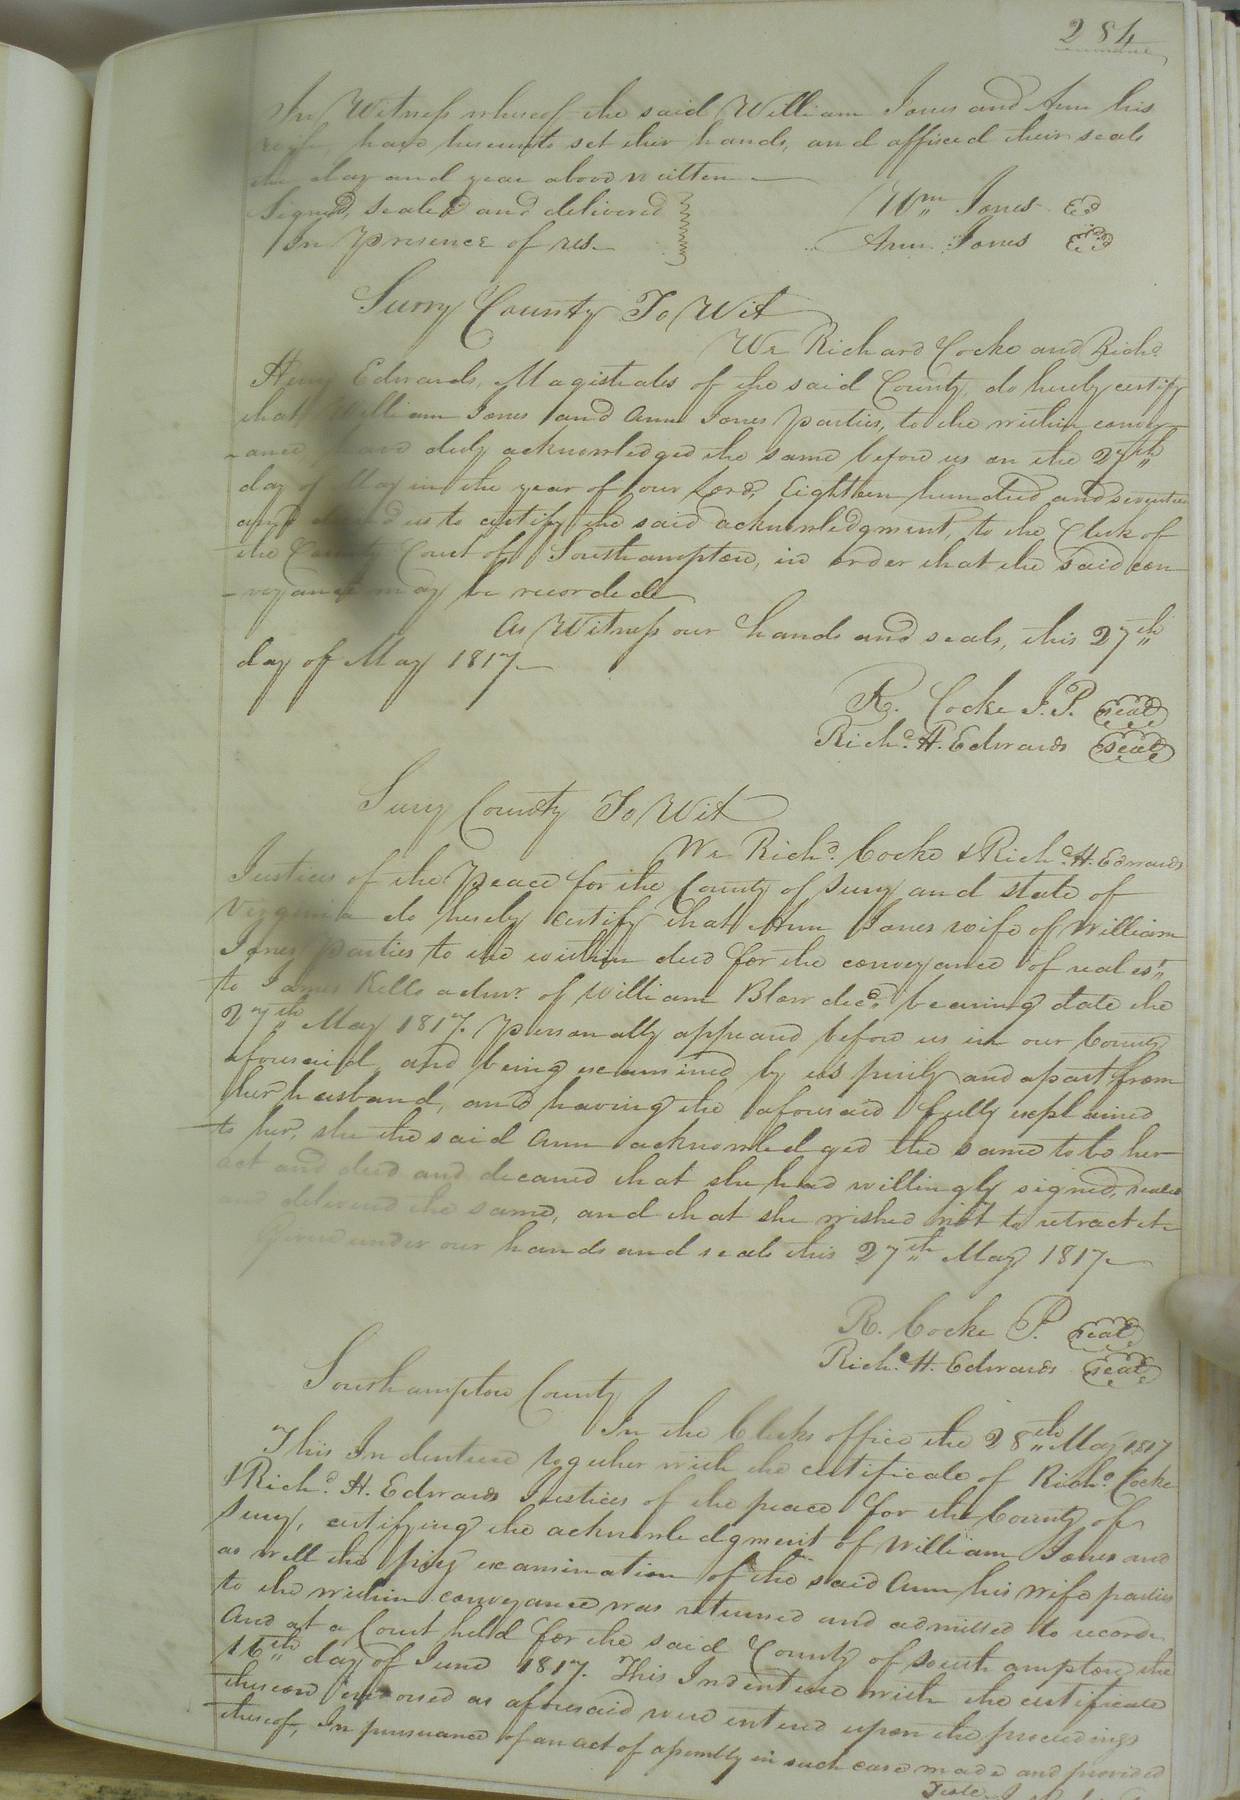 284
In Witness whereof the said William Jones and Ann his
wife have hereunto set their hands, and affixed their seals
the day and year above written
Signed, Sealed and delivered
In Presence of us
Wm Jones
Ann Jones
Surry County To Wit
We Richard Cocke and Richd.
Henry Edwards, Magistrates of the said County, do hereby certify
that William Jones and Ann Jones parties, to the within convey
-ance have duly acknowledged the same before us on the 27th
day of May in the year of our Lord, Eighteen hundred and seventeen
and desired us to certify the said acknowledgment, to the Clerk of
the County Court of Southampton, in order that the said con
-veyance may be recorded
As Witness our hands and seals, this 27th
day of May 1817
R. Cocke J.P. seal
Richd. H. Edwards seal
Surry County To Wit
We Richd. Cocke & Richd. H. Edwards
Justices of the Peace for the County of Surry and state of
Virginia do hereby certify that Ann Jones wife of William
Jones parties to the within deed for the conveyance of real est
to James Kello admr. of William Blow decd. bearing date the
27th May 1817. personally appeard before us in our County
aforesaid and being examined by us privily and apart from
her husband, and having the aforesaid fully explained
to her, she the said Ann acknowledged the same to be her
act and deed and decared that she had willingly signed, sealed
and delivered the same, and that she wished not to retract it
Given under our hands and seals this 27th May 1817
R. Cocke P. seal
Richd. H. Edwards seal
Southampton County
In the Clerks office the 28th May 1817
This Indenture together with the certificate of Richd. Cocke
& Richd. H. Edwards Justices of the peace for the County of
Surry, certifying the acknowledgment of William Jones and
as well the privy examination of the said Ann his wife parties
to the within conveyance was returned and admitted to record
And at a Court held for the said County of Southampton the
16th day of June 1817. This Indenture with the certificate
thereon endorsed as aforesaid were entered upon the proceedings
thereof, In pursuance of an act of assembly in such case made and provided
Teste